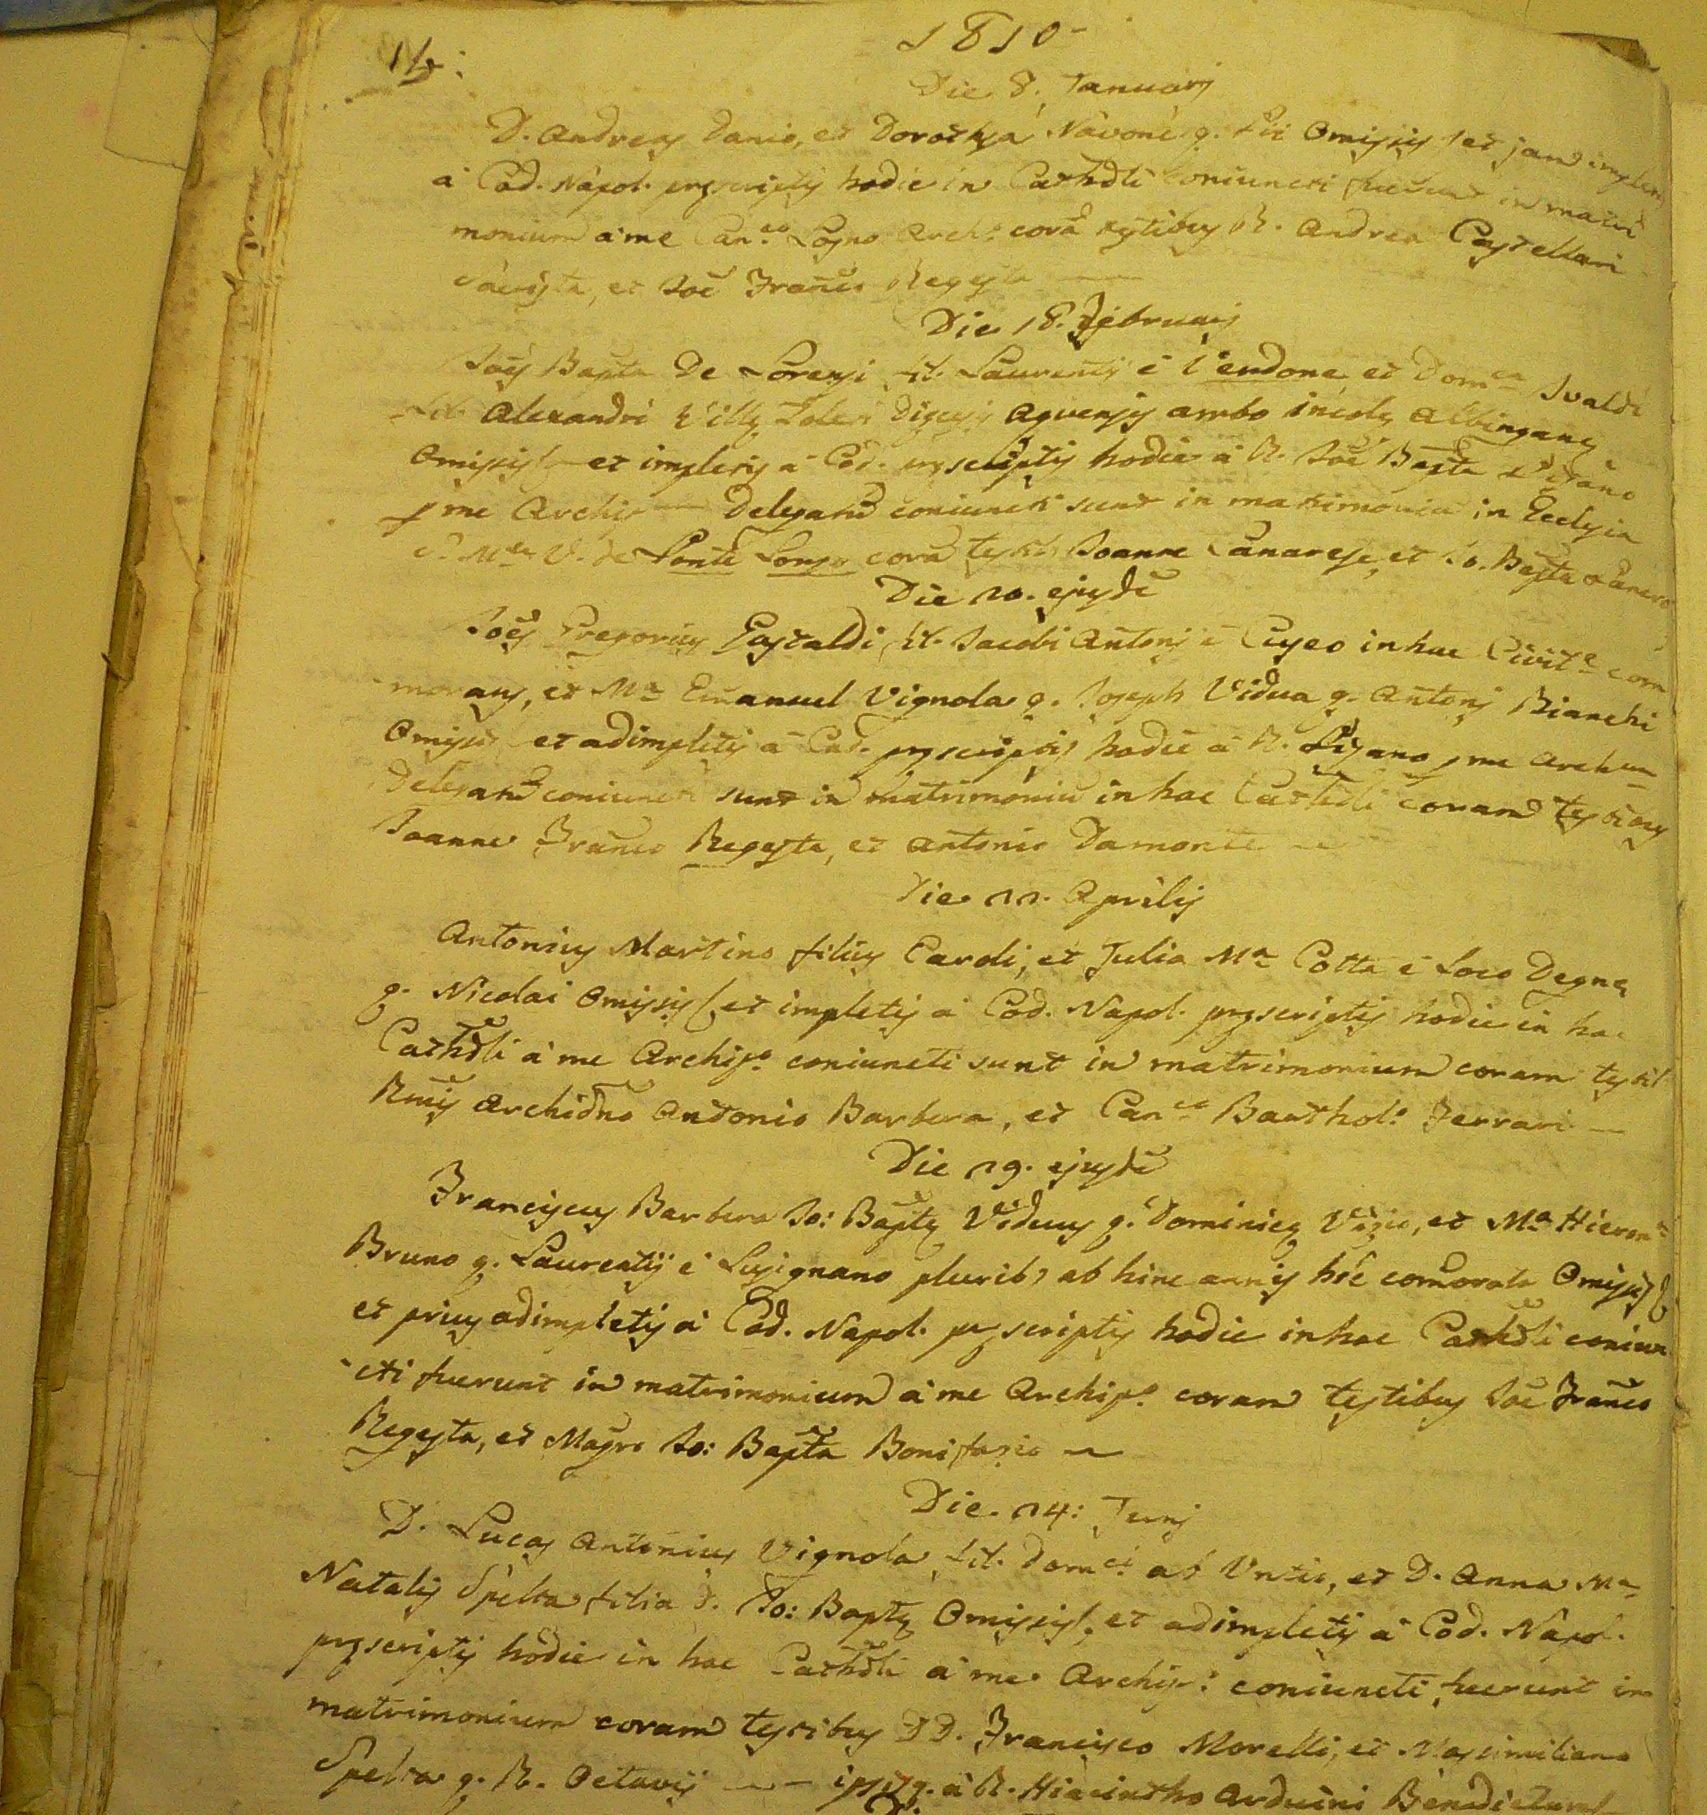 1810
Die 8. Januarij
D. Andreas Danio, et Dorothea Navone q. Pii Omissis et jam
a Cod. Napol. prescriptis hodie in Cathdli coniuncti fuerunt in matri
monium a me Can.co Archi. corā testibus R. Andrea Castellari
Sacrista, et Joē Franco Regesta
Die 18. Februarij
Joēs Bapta De Lorenzi fil. Laurentij e Cendone, et Dom.ca Ivaldi
fil. Alexandri Diecesis Aquensis ambo incolę Albinganę
Omissis et impletis a Cod. prescriptis hodie a R. Joē Bapta
p me Archip. Delegand coniuncti sunt in matrimoniu in Ecclesia
S. M.ę V. de Ponte Longo corā testib Joanne Canarese, et Jo. Bapta
Die 20. ejusdē
Joēs Gregorius Gastaldi fil. Jacobi Antonij e Ciseo in hac Civit.e com
morans, et M.a Emanuel Vignola q. Joseph Vidua q. Antonij Bianchi
Omissis et adimpletis a Cod. prescriptis hodie a R. p me Arch
Delegand coniuncti sunt in matrimoniū in hac Cathdli coram testibus
Joanne Franco Regesta, et Antonio Damonte
Die 22. Aprilis
Antonius Martino filius Caroli, et Julia M.a Cotta e Loco Degnę
q. Nicolai Omissis et impletis a Cod. Napol. prescriptis hodie in hac
Cathdli a me Archip.o coniuncti sunt in matrimonium coram testib
Rmis Archidno Antonio Barbera, et Can.co Barthol.o Ferrari
Die 29. ejusdē
Franciscus Barbera Jo: Baptę Viduus q. Dominicę, et M.a Hieron.a
Bruno q. Laurentij e Lusignano plurib9 ab hinc annis hīc comorata Omissis
et prius adimpletis a Cod. Napol. prescriptis hodie in hac Cathdli coniun
cti fuerunt in matrimonium a me Archip.o coram testibus Joē Franco
Regesta, et Magro Jo: Bapta Bonifazio
Die 24: Junij
D. Lucas Antonius Vignola fil. Dom.ci ab Untie, et D. Anna M.a
Natalis Spelta filia D. Jo: Baptę Omissis, et adimpletis a Cod. Napol.
prescriptis hodie in hac Cathdli a me Archip: coniuncti fuerunt in
matrimonium coram testibus DD. Francisco Morelli, et Massimiliano
Spelta q. R. Octavij ipsisq. a R. Hiacintho Arduini